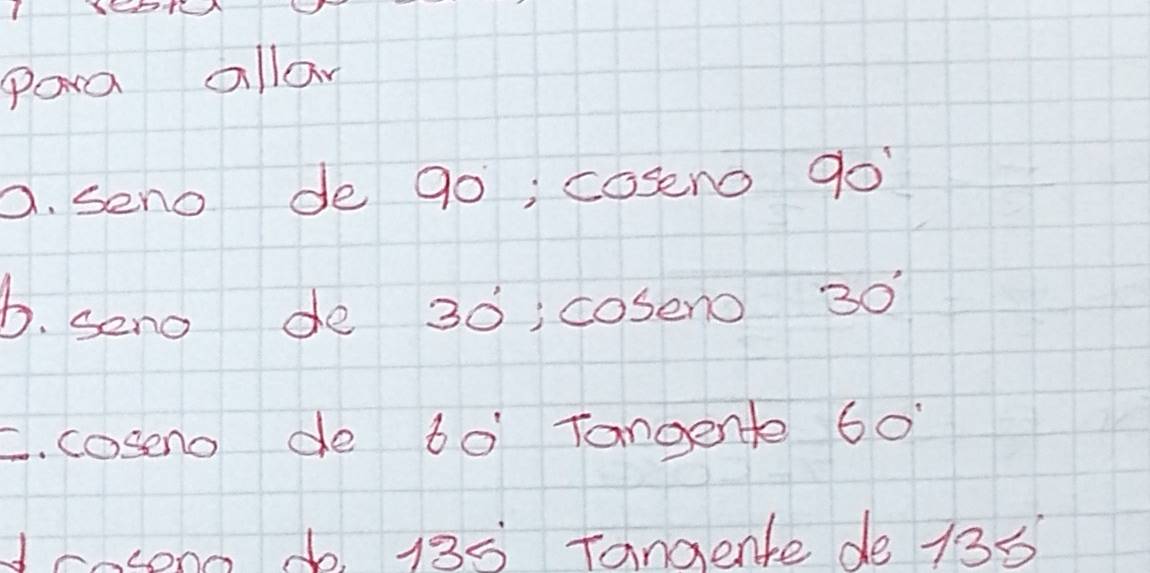 para allar
a. seno de 90°; coseno 90°
b. seno de 30°; coseno 30°
c. coseno de 60° Tangente 60°
d coseno de 135° Tangente de 135°